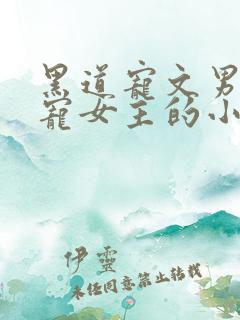 黑道寵文男
寵女主的小
伊靈
未经同意禁止转载